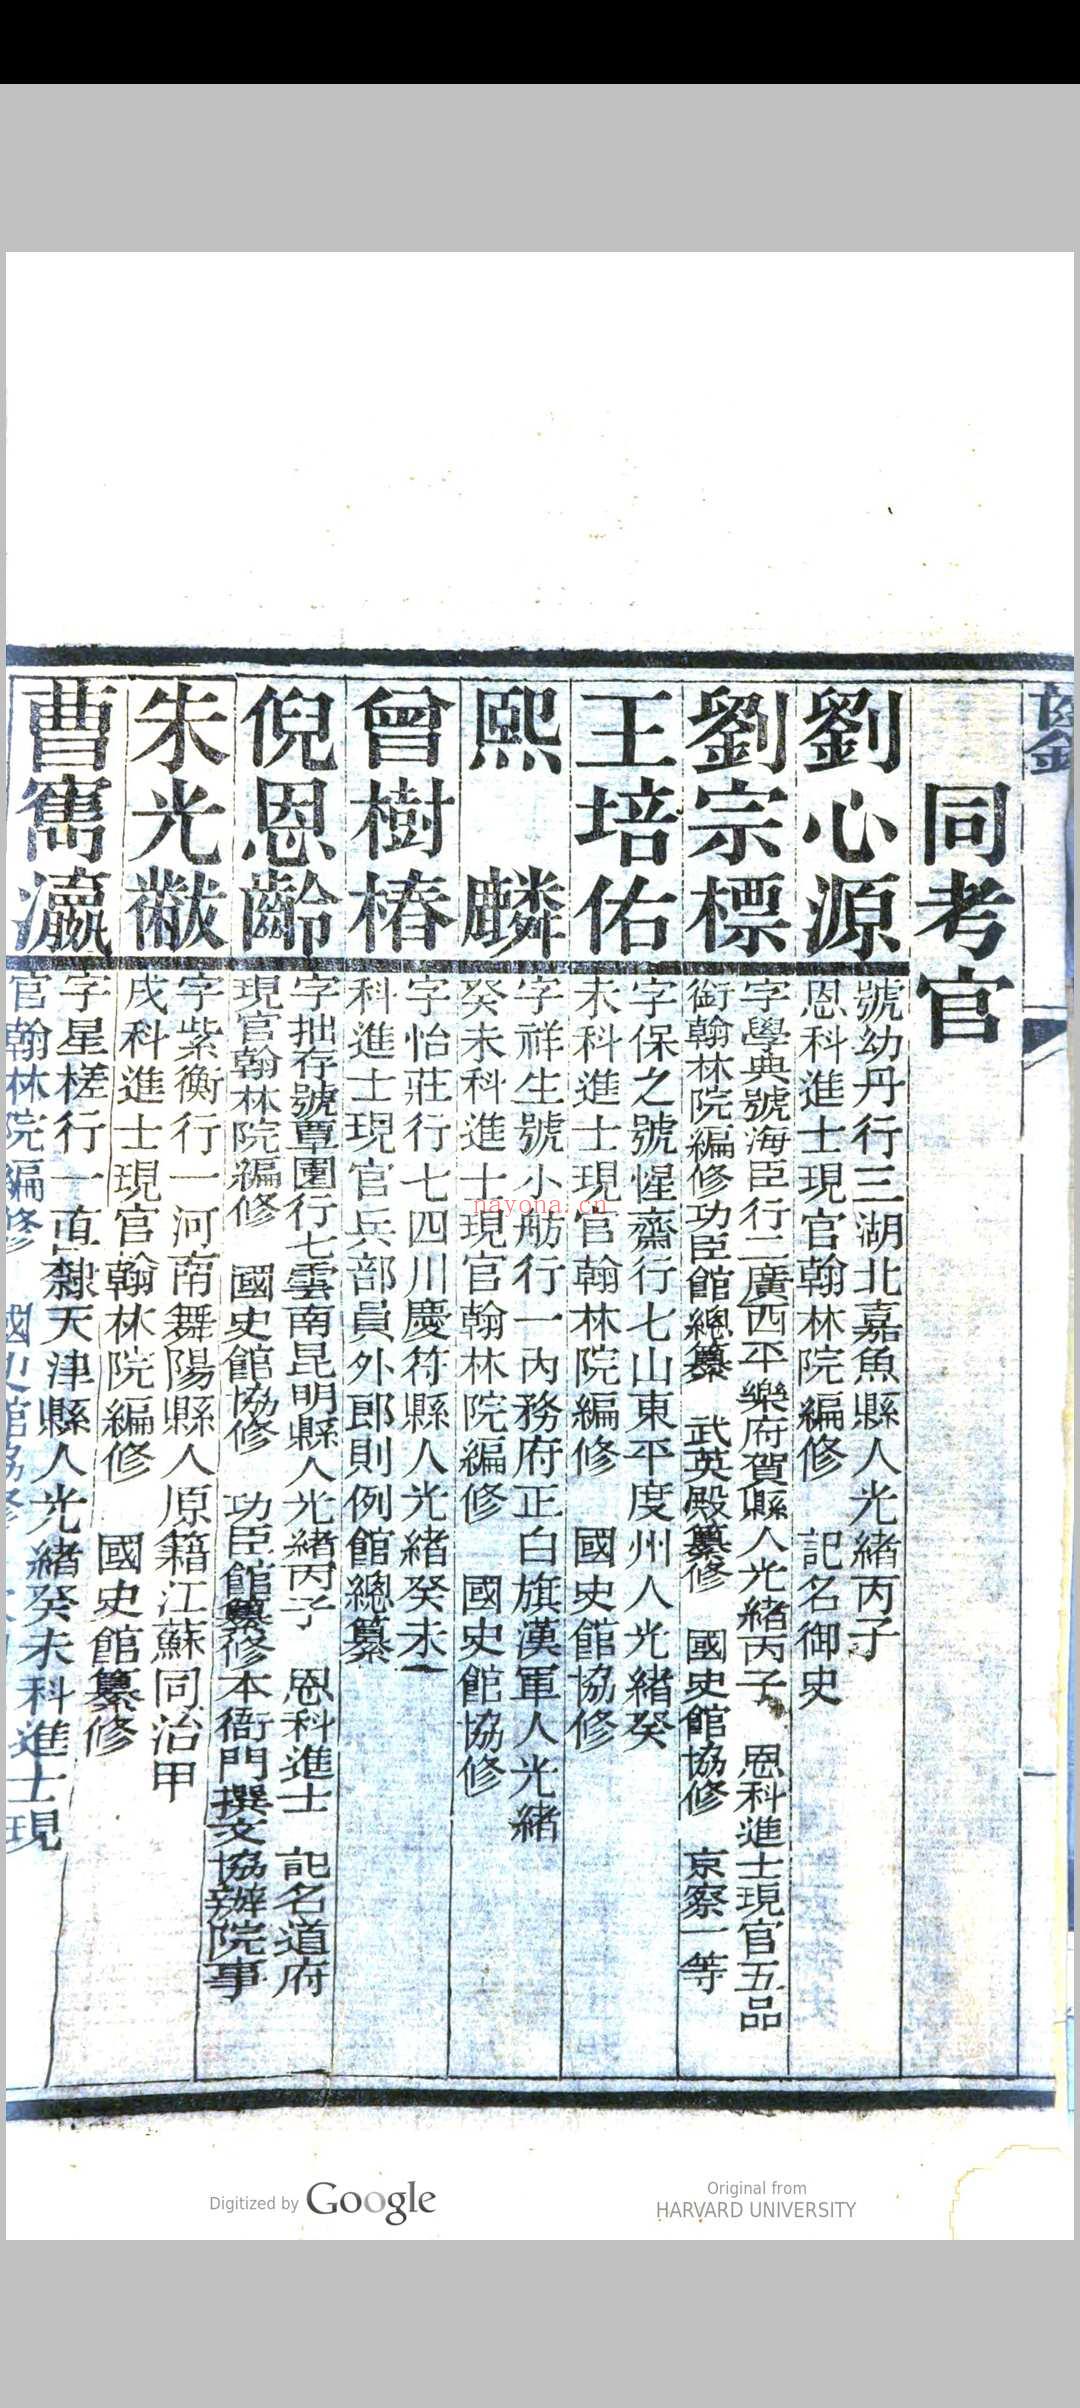 同考官
劉心源
號幼丹行三湖北嘉魚縣人光緒丙子
恩科進士現官翰林院編修 記名御史
劉宗標
字學典號海臣行二廣西平樂府賀縣人光緒丙子 恩科進士現官五品
銜翰林院編修功臣館總纂 武英殿纂修 國史館協修 京察一等
王培佑
字保之號惺齋行七山東平度州人光緒癸
未科進士現官翰林院編修 國史館協修
熙麟
字祥生號小舫行一內務府正白旗漢軍人光緒
癸未科進士現官翰林院編修 國史館協修
曾樹椿
字怡莊行七四川慶符縣人光緒癸未
科進士現官兵部員外郎則例館總纂
倪恩齡
字拙存號覃園行七雲南昆明縣人光緒丙子 恩科進士 記名道府
現官翰林院編修 國史館協修 功臣館纂修本衙門撰文協辦院事
朱光黻
字紫衡行一河南舞陽縣人原籍江蘇同治甲
戌科進士現官翰林院編修 國史館纂修
曹雋瀛
字星槎行一直隸天津縣人光緒癸未科進士現
官翰林院編修 國史館協修
nayona.cn
Digitized by Google
Original from
HARVARD UNIVERSITY